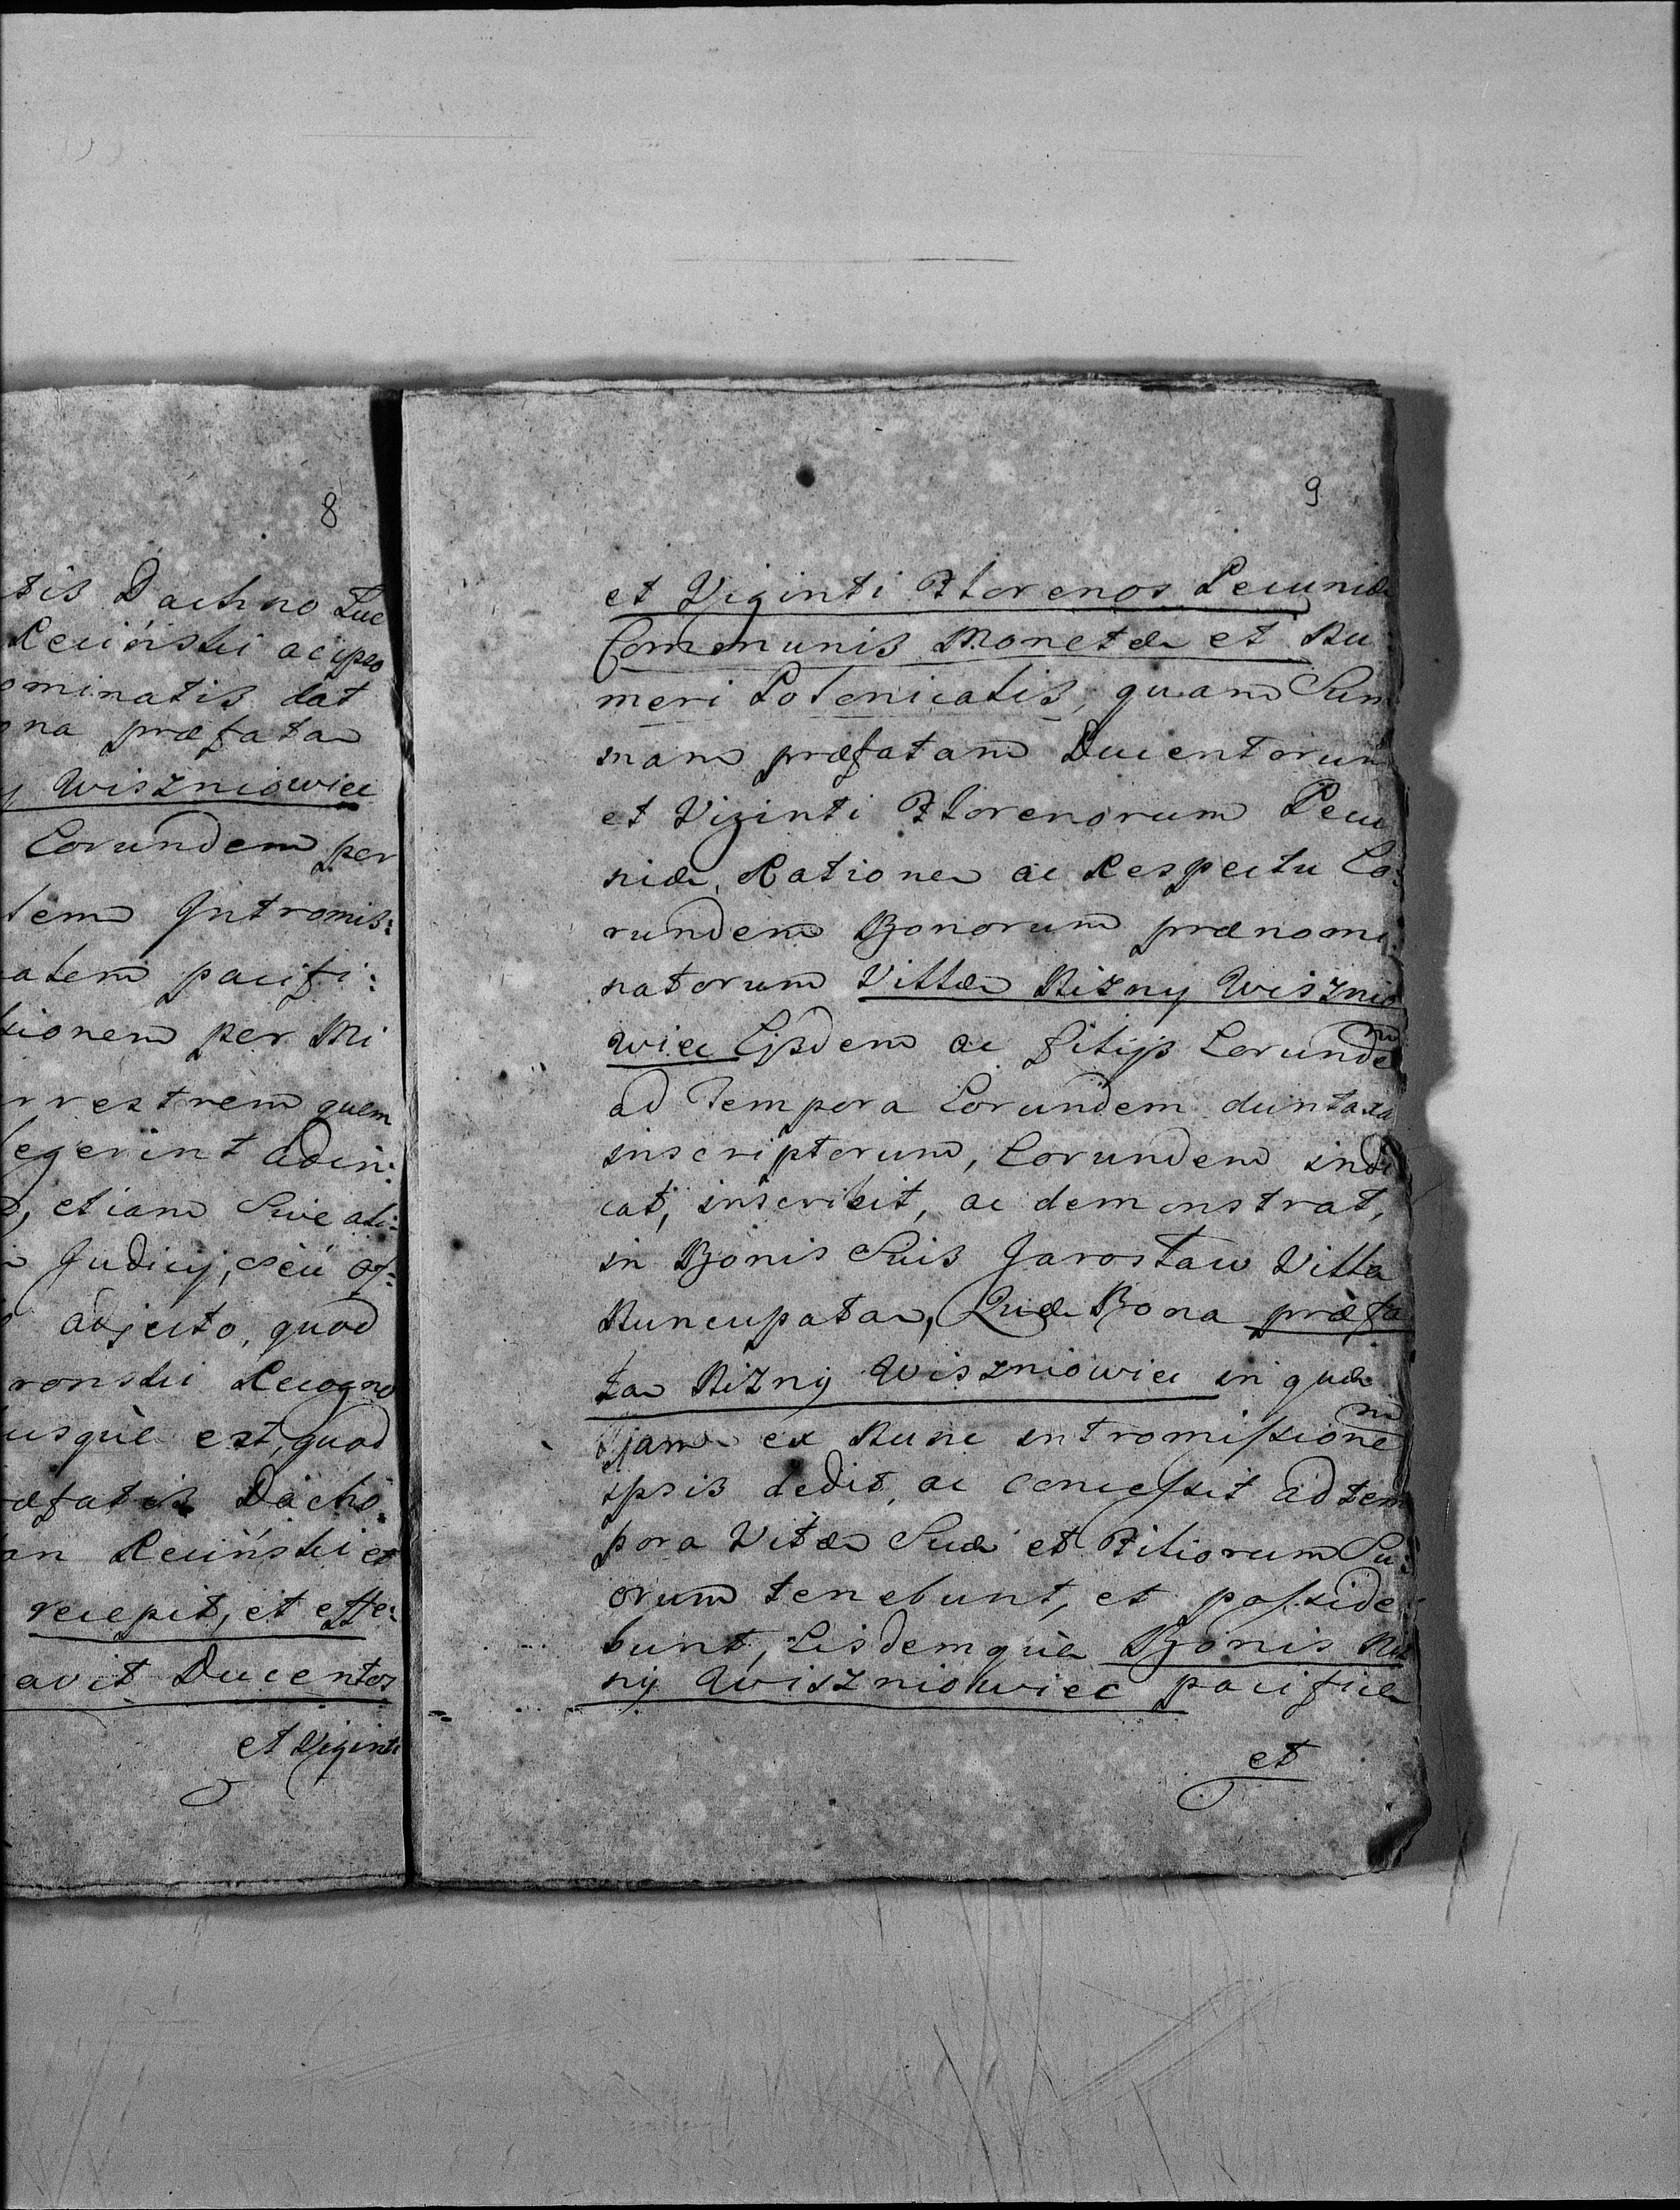 8
tis Dachno Luc
Reciński ac ipso
ominatis dat
ona præfata
y Wiszniowiec
Eorundem per
tem Intromis:
atem pacifi:
tionem per Mi
rrestrem quem
egerint adein:
, etiam Sive ali:
Judicij, seu of:
adjecto, quod
ronski Recogno
usque est, quod
æfatis Dacho
an Reciński et
recepit, et effe:
avit Ducentos
et Viginti
9
et Viginti Florenos Pecuniæ
Communis Monetæ et Nu
meri Polonicalis, quam Sum
mam præfatam Ducentorum
et Viginti Florenorum Pecu
niæ, Ratione ac Respectu Eo:
rundem Bonorum prænomi
natorum Villæ Nizny Wisznio
wiec Eisdem ac filijs Eorundem
ad Tempora Eorundem duntaxa
inscriptorum, Eorundem indi
cat, inscribit, ac demonstrat,
in Bonis Suis Jarosław Villa
Nuncupata, Quæ Bona præfa
ta Nizny Wiszniowiec in quæ
jam ex Nunc intromissionem
ipsis dedit, ac concessit ad tem
pora Vitæ Suæ et Filiorum Su:
orum tenebunt, et posside
bunt, Eisdemque Bonis Niz
ny Wiszniowiec pacifice
et